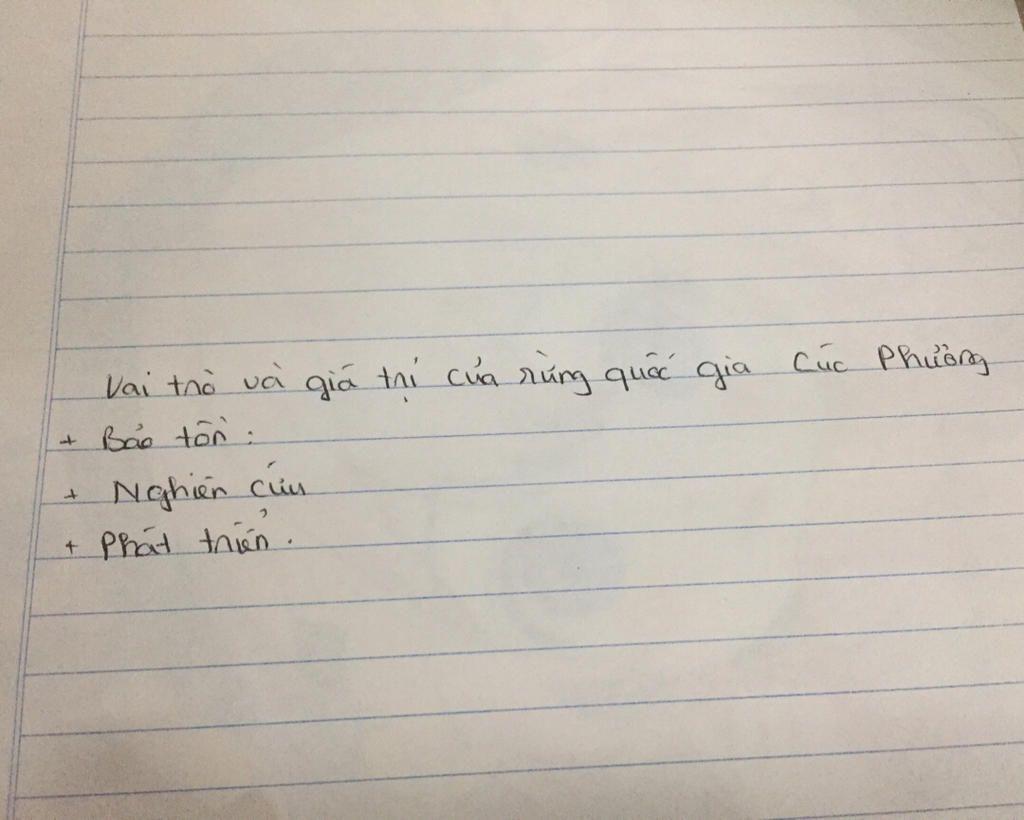 Vai trò và giá trị của rừng quốc gia Cúc Phương
+ Bảo tồn :
+ Nghiên cứu
+ Phát triển .